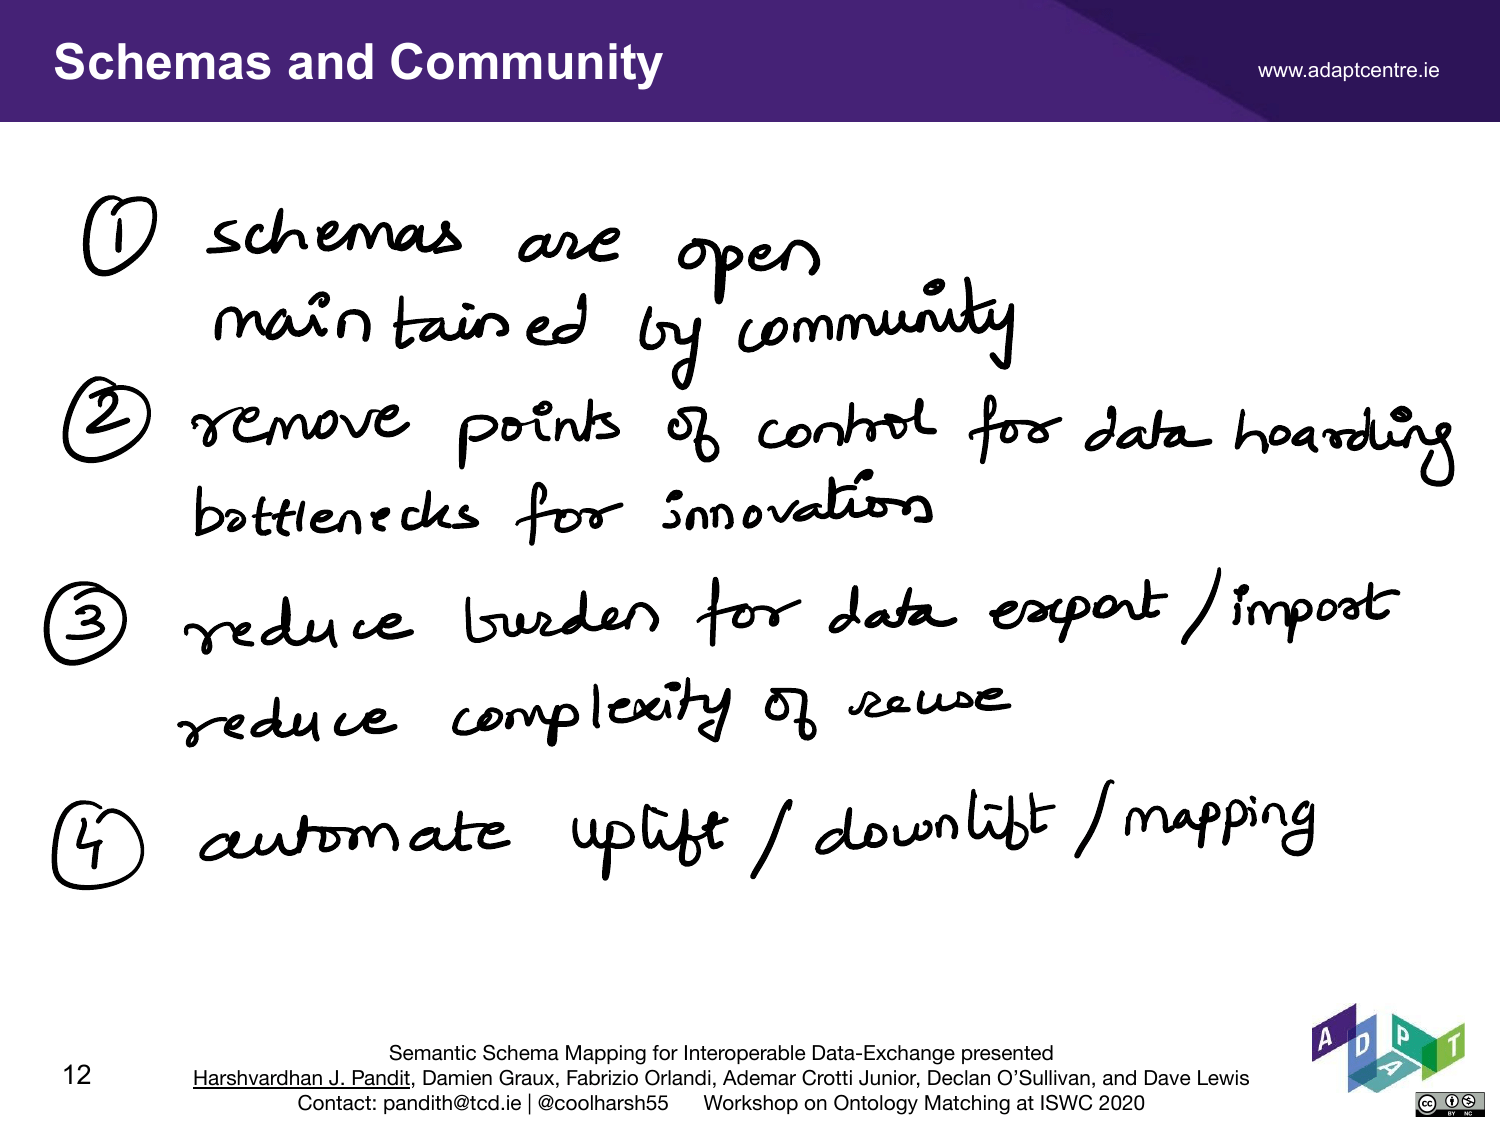 Schemas and Community
www.adaptcentre.ie
① schemas are open
maintained by community
② remove points of control for data hoarding
bottlenecks for innovation
③ reduce burden for data export / import
reduce complexity of reuse
④ automate uplift / downlift / mapping
ADAPT
Semantic Schema Mapping for Interoperable Data-Exchange presented
12
Harshvardhan J. Pandit, Damien Graux, Fabrizio Orlandi, Ademar Crotti Junior, Declan O’Sullivan, and Dave Lewis
Contact: pandith@tcd.ie | @coolharsh55 Workshop on Ontology Matching at ISWC 2020
cc BY NC